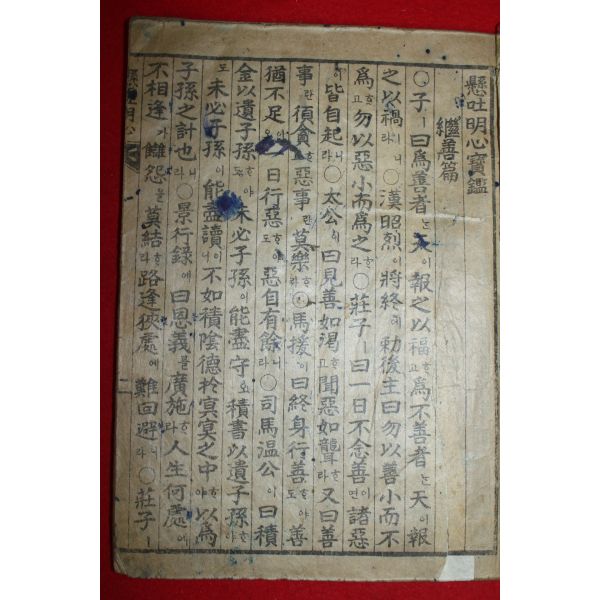 懸吐明心寶鑑
繼善篇
○子ㅣ曰爲善者는天이報之以福ᄒᆞ고爲不善者는天이報
之以禍ᄒᆞ니라○漢昭烈이將終에勅後主曰勿以善小而不
爲ᄒᆞ고勿以惡小而爲之ᄒᆞ라○莊子ㅣ曰一日不念善이면諸惡
이皆自起니라○太公이曰見善如渴ᄒᆞ고聞惡如聾ᄒᆞ라又曰善
事란須貪ᄒᆞ고惡事란莫樂ᄒᆞ라○馬援이曰終身行善ᄒᆞ야도善
猶不足이오一日行惡ᄒᆞ야도惡自有餘ᄒᆞ니라○司馬温公이曰積
金以遺子孫ᄒᆞ야도未必子孫이能盡守오積書以遺子孫ᄒᆞ야
도未必子孫이能盡讀이니不如積陰德於冥冥之中ᄒᆞ야以爲
子孫之計也니라○景行錄에曰恩義를廣施ᄒᆞ라人生何處
不相逢가讐怨을莫結ᄒᆞ라路逢狹處에難回避니라○莊子ㅣ
明心
二